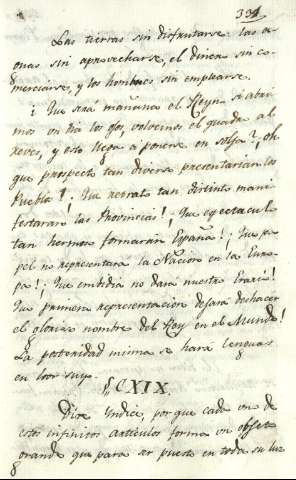 331
Las tierras sin disfrutarse: las a-
guas sin aprovecharse, el dinero sin co-
merciarse, y los hombres sin emplearse.
¡ Que será mañana el Reyno si abri-
mos un dia los ojos, volvemos el guarda al
reves, y esto llega a ponerse en solfa? ¡oh
que prospecto tan diverso presentarian los
Pueblos! ¡ Que retrato tan distinto mani
festaran las Provincias! Que espectaculo
tan hermoso formaria España! ¡ Que pa-
pel no representará la Nacion en la Euro-
pa! ¡ Que embidia no dara nuestro Erario!
Que primera representacion dejara de hacer
el glorioso nombre del Rey en el Mundo!
La posteridad misma se hará lenguas
en loor suyo.
§ CXIX.
Dixe Yndice, por que cada uno de
estos infinitos articulos forma un objeto
grande que para ser puesto en toda su luz